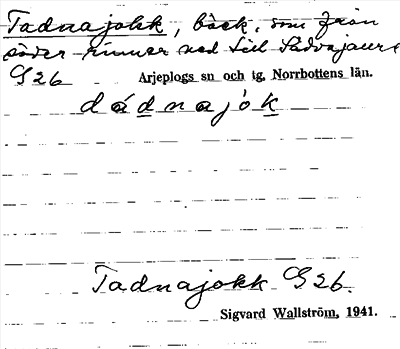 Tadnajokk, bäck, som från
söder rinner ned till Sädvajaure
G26 Arjeplogs sn och tg, Norrbottens län.
dádnajòk
Tadnajokk G26
Sigvard Wallström, 1941.